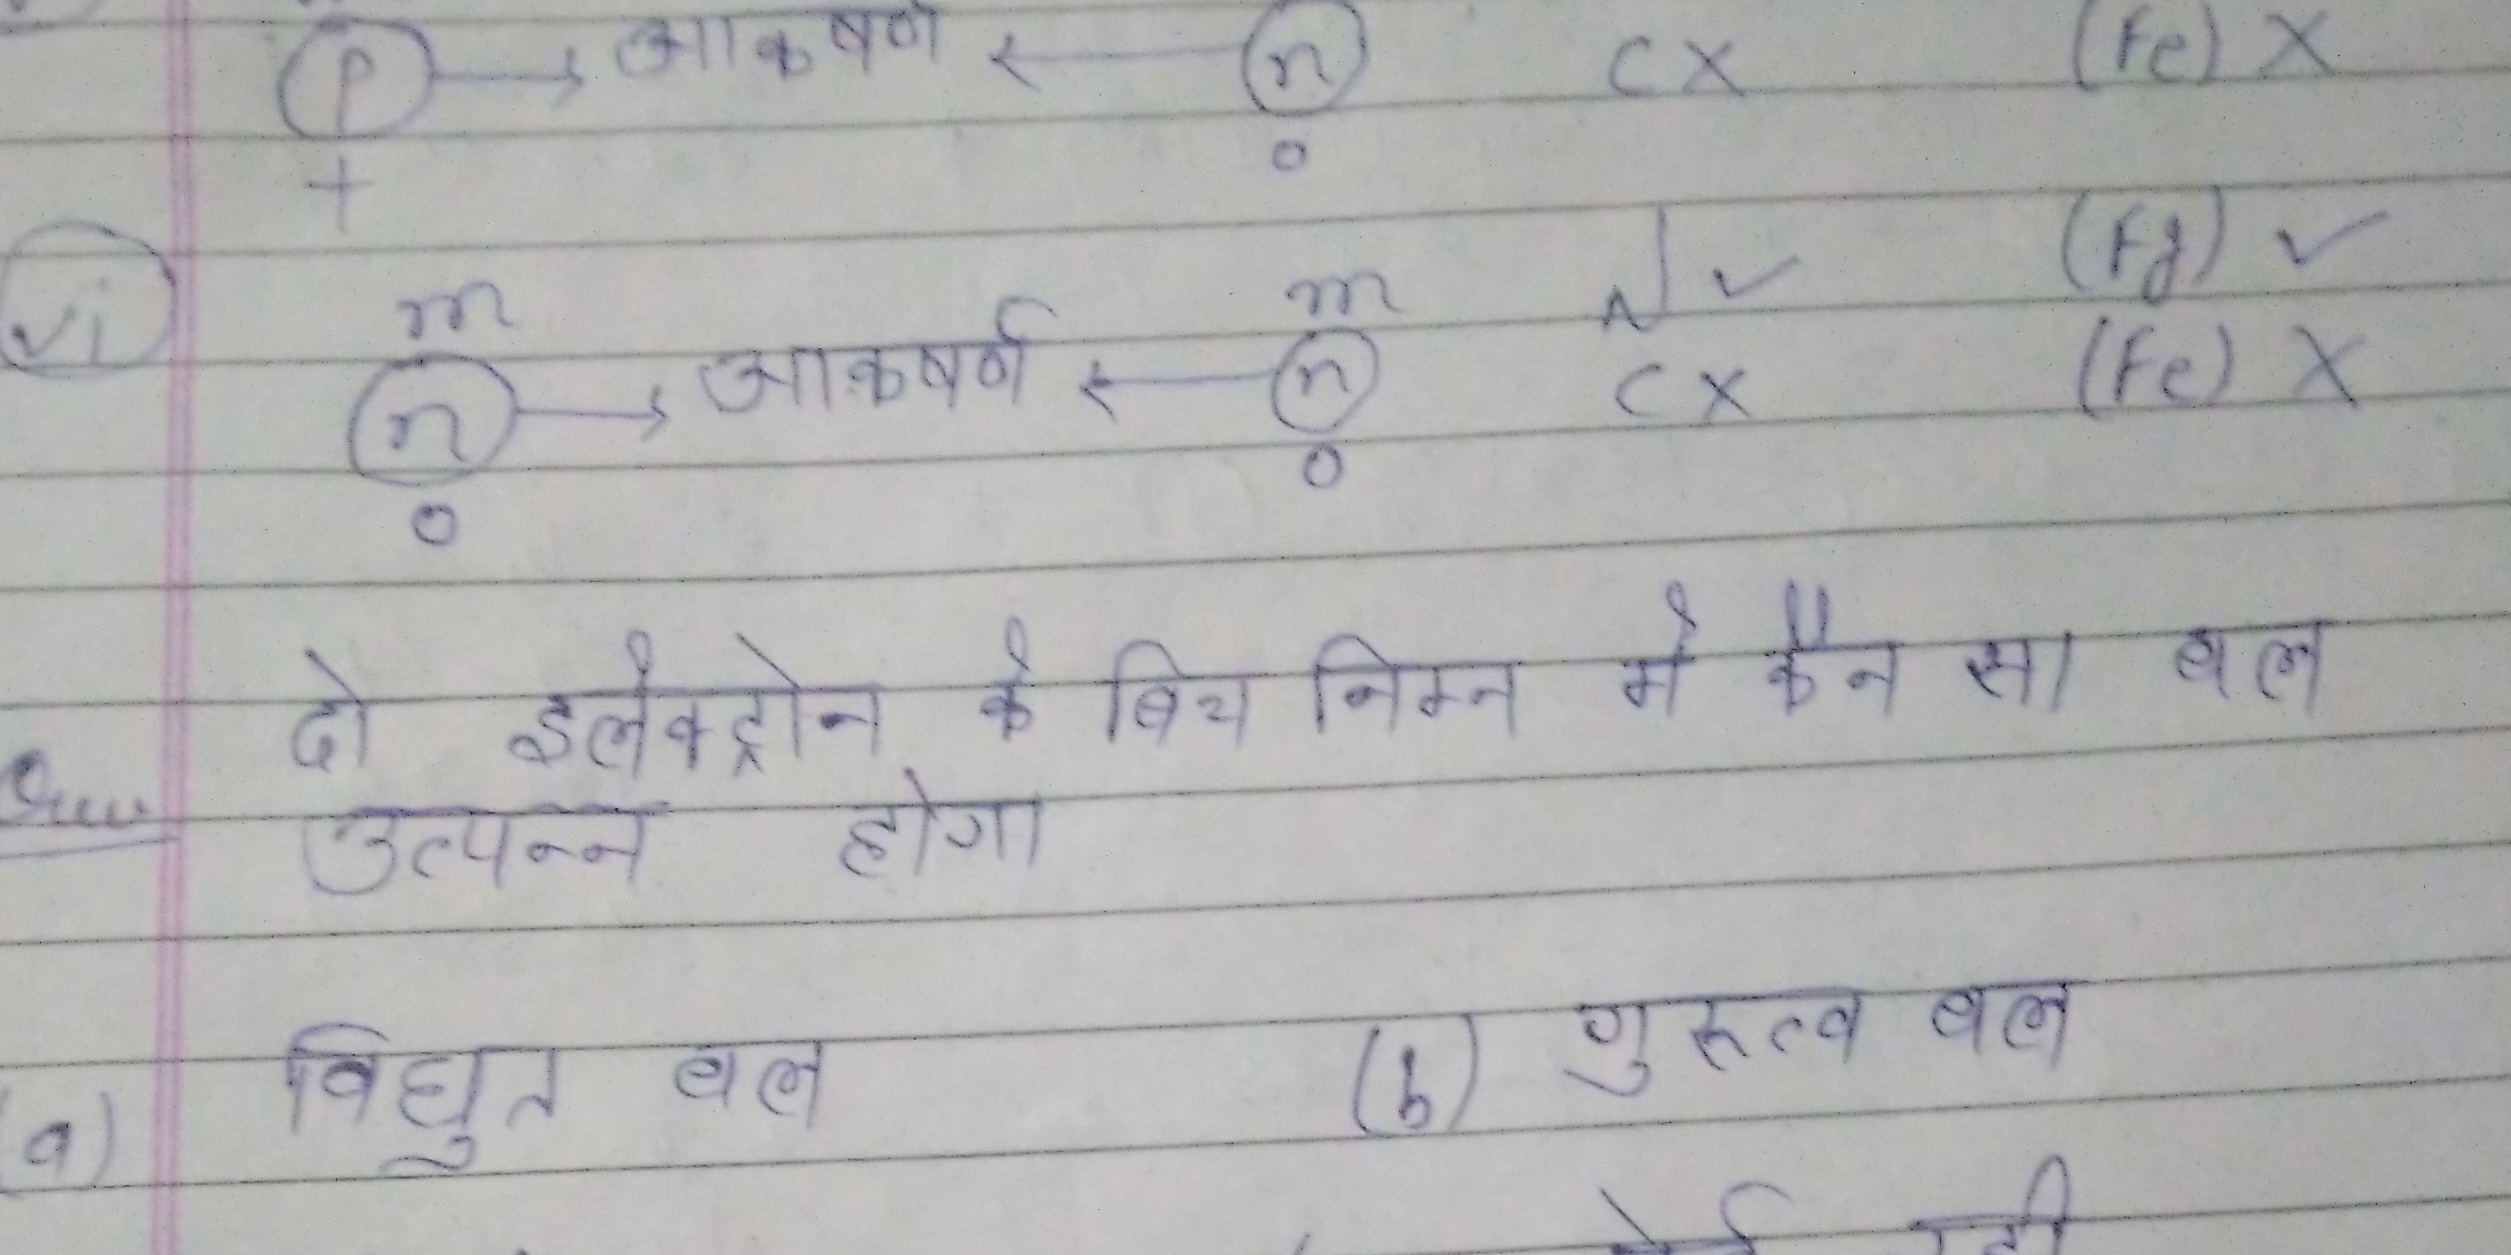 p → आकर्षण ← n C X (Fe) X
+ 0
vi m m N ✓ (Fg) ✓
n → आकर्षण ← n C X (Fe) X
0 0
दो इलेक्ट्रोन के बिच निम्न मे कौन सा बल
उत्पन्न होगा
(a) विधुत बल (b) गुरुत्व बल